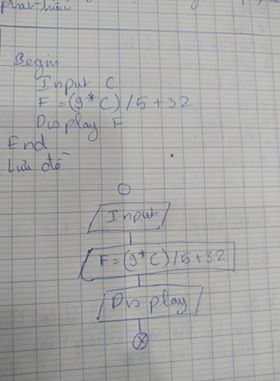 Begin
Input C
F = (9 * C) / 5 + 32
Display F
End
Lưu đồ
Input
F = (9 * C) / 5 + 32
Display